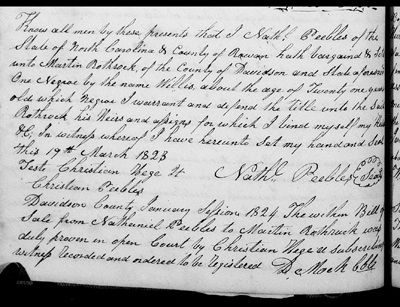 Know all men by these presents that I Nathl. Peebles of the
State of North Carolina & County of Rowan hath bargaind & 
unto Martin Rothrock, of the County of Davidson and State aforesaid
One Negroe by the name Willis, about the age of Twenty one years
old which Negroe I warrant and defend the title unto the said
Rothrock his Heirs and assigns for which I bind myself my Heirs
&C, In witness whereof I have hereunto Set my hand and Seal
this 19th March 1823
Teste Christian Wege Jt Nathl. Peebles Seal
Christian Peebles
Davidson County January Session 1824 The within Bill of
Sale from Nathaniel Peebles to Martin Rothrock was
duly proven in open Court by Christian Wege a subscribing
witness recorded and ordered to be registered D. Mock CCC